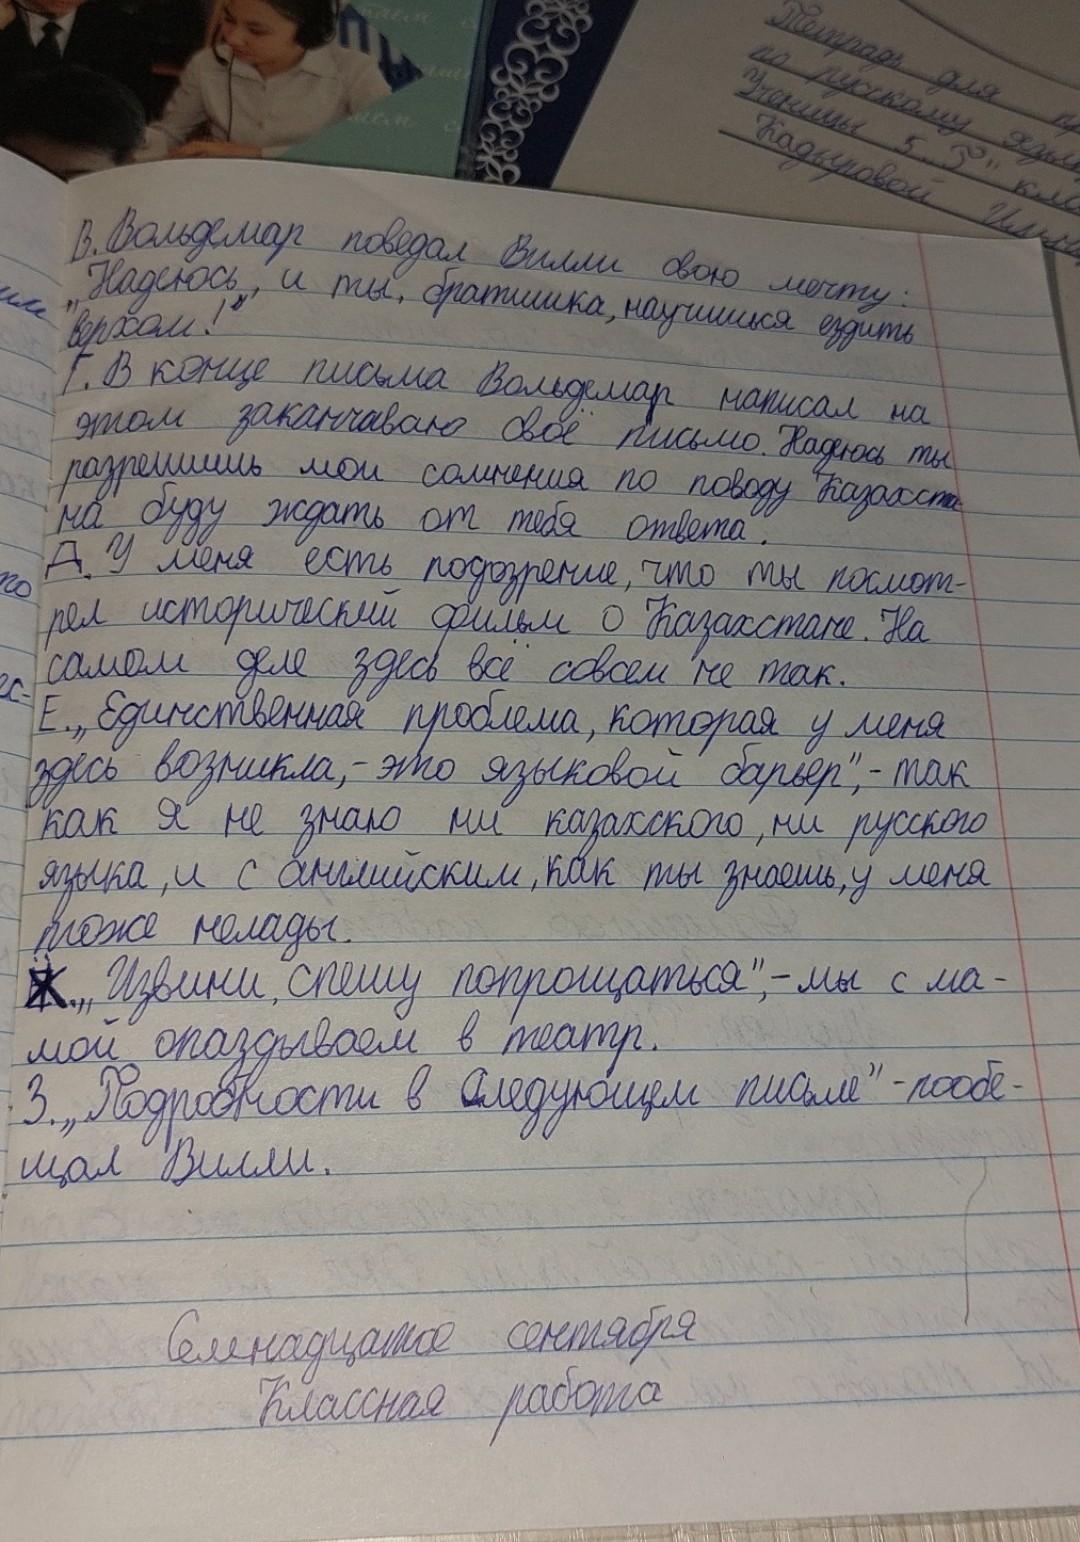 Тетрадь для
по русскому
Ученицы 5 "Г"
Кадыровой
В. Вольдемар поведал Вилли свою мечту:
„Надеюсь, и ты, братишка, научишься ездить
верхом!"
Г. В конце письма Вольдемар написал на
этом заканчиваю своё письмо. Надеюсь ты
разрешишь мои сомнения по поводу Казахста
на буду ждать от тебя ответа.
Д. У меня есть подозрение, что ты посмот-
рел исторический фильм о Казахстане. На
самом деле здесь всё совсем не так.
Е. „Единственная проблема, которая у меня
здесь возникла, - это языковой барьер", - так
как я не знаю ни казахского, ни русского
языка, и с английским, как ты знаешь, у меня
тоже нелады.
Ж. „Извини, спешу попрощаться", - мы с ма-
мой опаздываем в театр.
З. „Подробности в следующем письме" - пообе-
щал Вилли.
Семнадцатое сентября
Классная работа